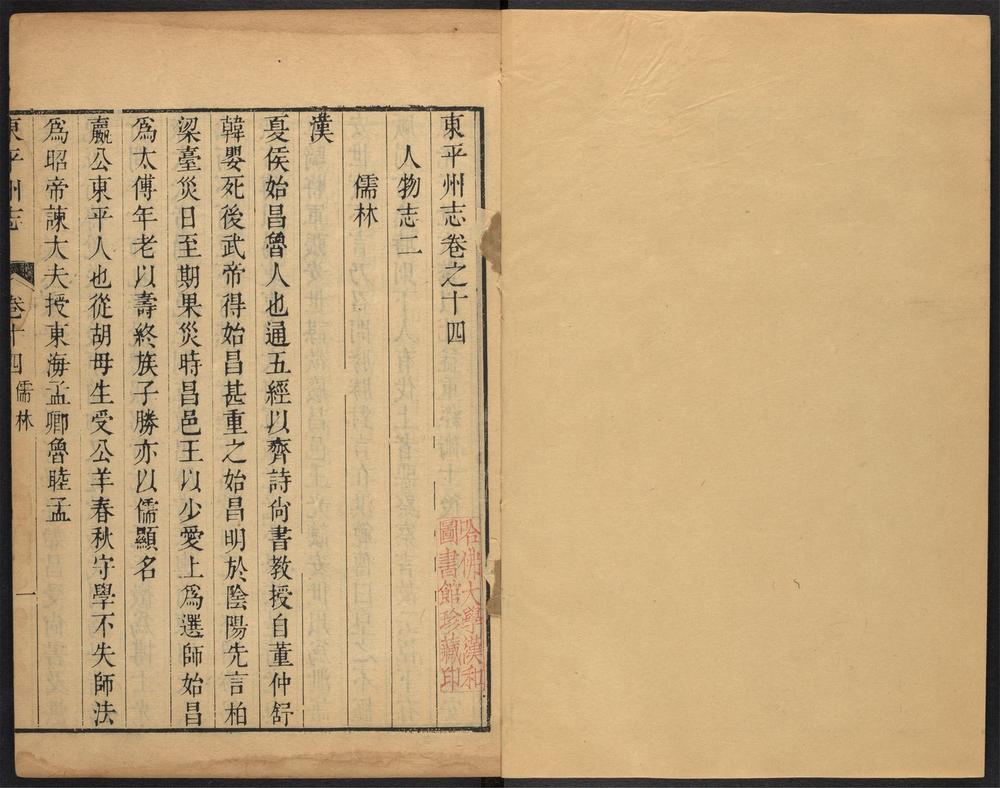 東平州志卷之十四
人物志二
儒林
漢
夏侯始昌魯人也通五經以齊詩尙書教授自董仲舒
韓嬰死後武帝得始昌甚重之始昌明於陰陽先言柏
梁臺災日至期果災時昌邑王以少愛上爲選師始昌
爲太傅年老以壽終族子勝亦以儒顯名
嬴公東平人也從胡母生受公羊春秋守學不失師法
爲昭帝諫大夫授東海孟卿魯眭孟
東平州志 卷十四 儒林 一
哈佛大學漢和
圖書館珍藏印